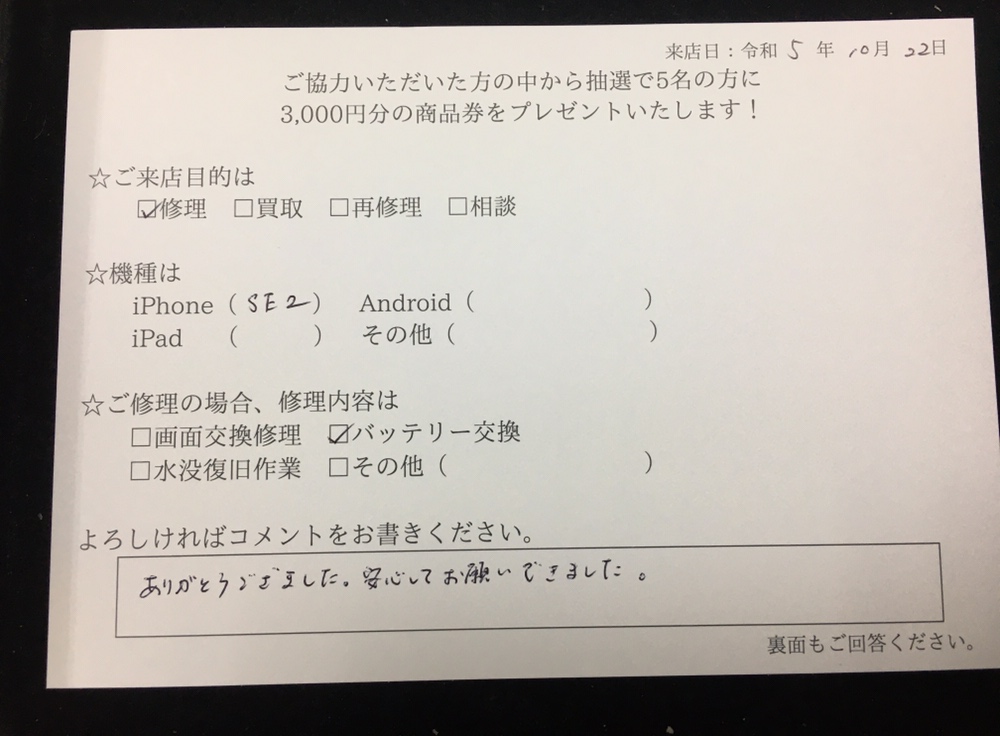 来店日：令和 5 年 10月 22日
ご協力いただいた方の中から抽選で5名の方に
3,000円分の商品券をプレゼントいたします！
☆ご来店目的は
☑修理 □買取 □再修理 □相談
☆機種は
iPhone（ SE2 ） Android（ ）
iPad （ ） その他（ ）
☆ご修理の場合、修理内容は
□画面交換修理 ☑バッテリー交換
□水没復旧作業 □その他（ ）
よろしければコメントをお書きください。
ありがとうございました。安心してお願いできました。
裏面もご回答ください。